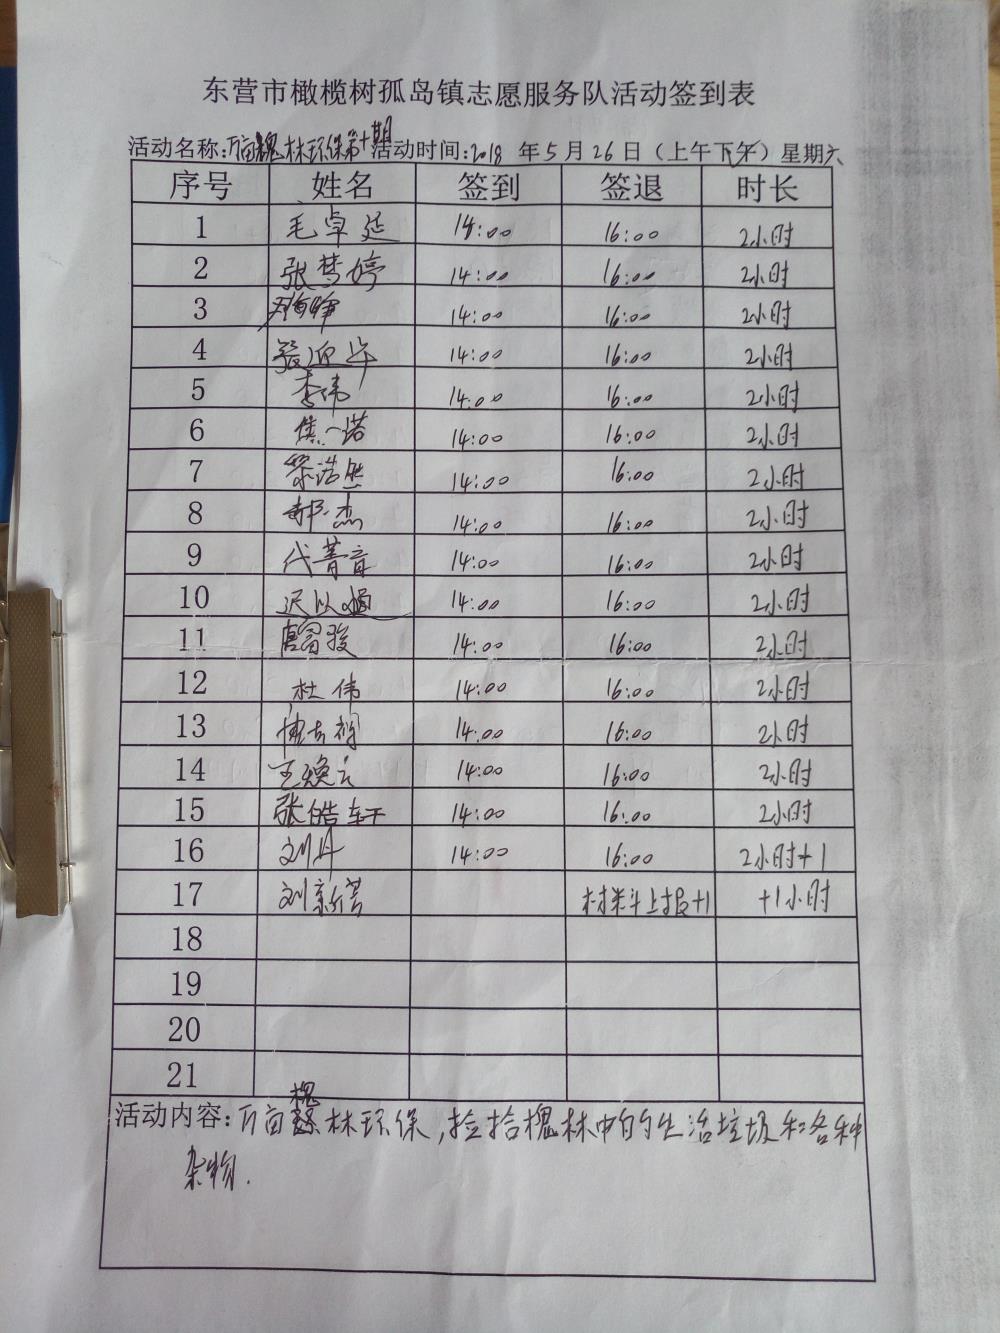 东营市橄榄树孤岛镇志愿服务队活动签到表
活动名称:万亩槐林环保第十期 活动时间:2018 年 5 月 26 日（上午下午）星期六
序号 姓名 签到 签退 时长
1 毛卓延 14:00 16:00 2小时
2 张梦婷 14:00 16:00 2小时
3 14:00 16:00 2小时
4 张迎华 14:00 16:00 2小时
5 李伟 14:00 16:00 2小时
6 焦一诺 14:00 16:00 2小时
7 黎浩然 14:00 16:00 2小时
8 郝杰 14:00 16:00 2小时
9 代菁音 14:00 16:00 2小时
10 14:00 16:00 2小时
11 14:00 16:00 2小时
12 杜伟 14:00 16:00 2小时
13 14:00 16:00 2小时
14 14:00 16:00 2小时
15 张皓轩 14:00 16:00 2小时
16 刘丹 14:00 16:00 2小时+1
17 刘新茗 材料上报+1 +1小时
18
19
20
21
活动内容:万亩槐林环保,捡拾槐林中的生活垃圾和各种
杂物.